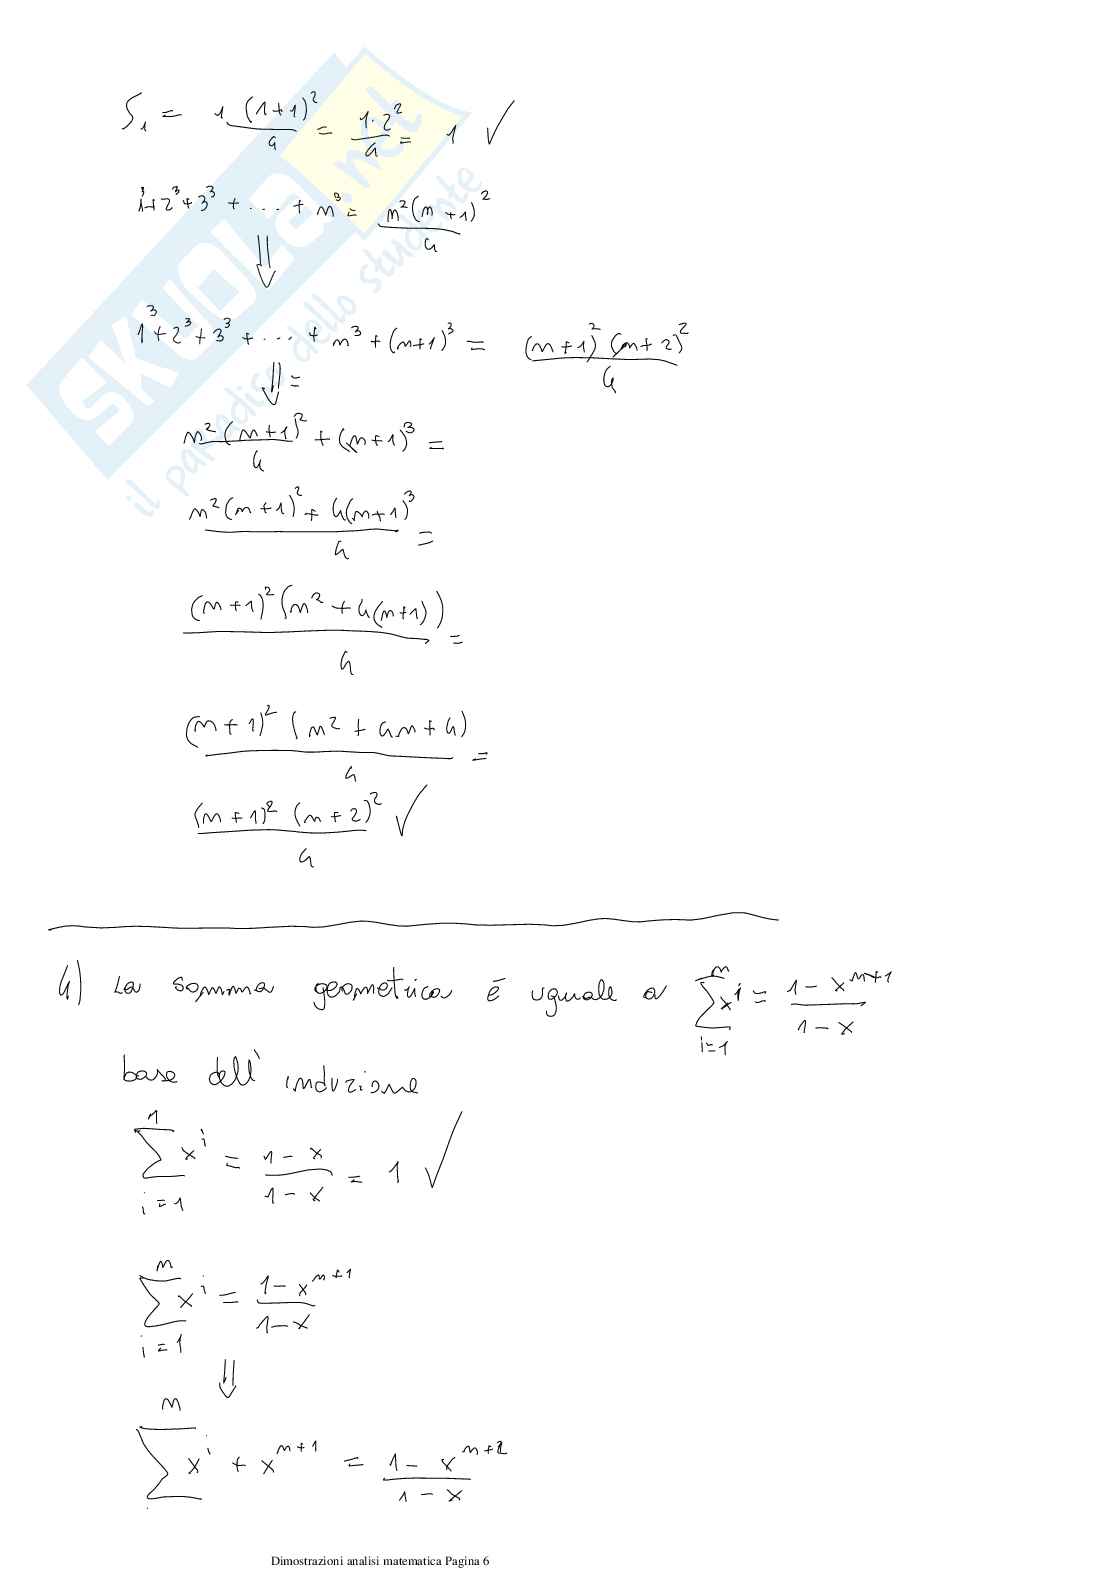 S₁ = 1 (1+1)² / 4 = 1·2² / 4 = 1 ✓
1³+2³+3³ + ... + n³ = n²(n+1)² / 4
⇓
1³+2³+3³ + ... + n³ + (n+1)³ = (n+1)² (n+2)² / 4
⇓ =
n²(n+1)² / 4 + (n+1)³ =
n²(n+1)² + 4(n+1)³ / 4 =
(n+1)² (n² + 4(n+1)) / 4 =
(n+1)² (n² + 4n + 4) / 4 =
(n+1)² (n+2)² / 4 ✓
4) La somma geometrica è uguale a ∑_{i=1}^{n} x^i = 1 - x^{n+1} / 1 - x
base dell' induzione
∑_{i=1}^{1} x^i = 1 - x / 1 - x = 1 ✓
∑_{i=1}^{n} x^i = 1 - x^{n+1} / 1 - x
⇓
∑^{n} x^i + x^{n+1} = 1 - x^{n+2} / 1 - x
SKUOLA.net
il paradiso dello studente
Dimostrazioni analisi matematica Pagina 6